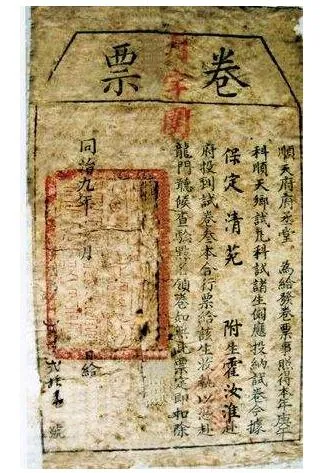 卷票
順天府府丞堂 為給發卷票事照得本年庚午
科順天鄉試凡科試諸生例應投納試卷合據
保定 清苑 附生 霍汝淮 赴
府投到試卷叁本合行票給該生收執以憑赴
龍門聽候查驗點名領卷如無此票定即扣除
同治九年 月 日給
號